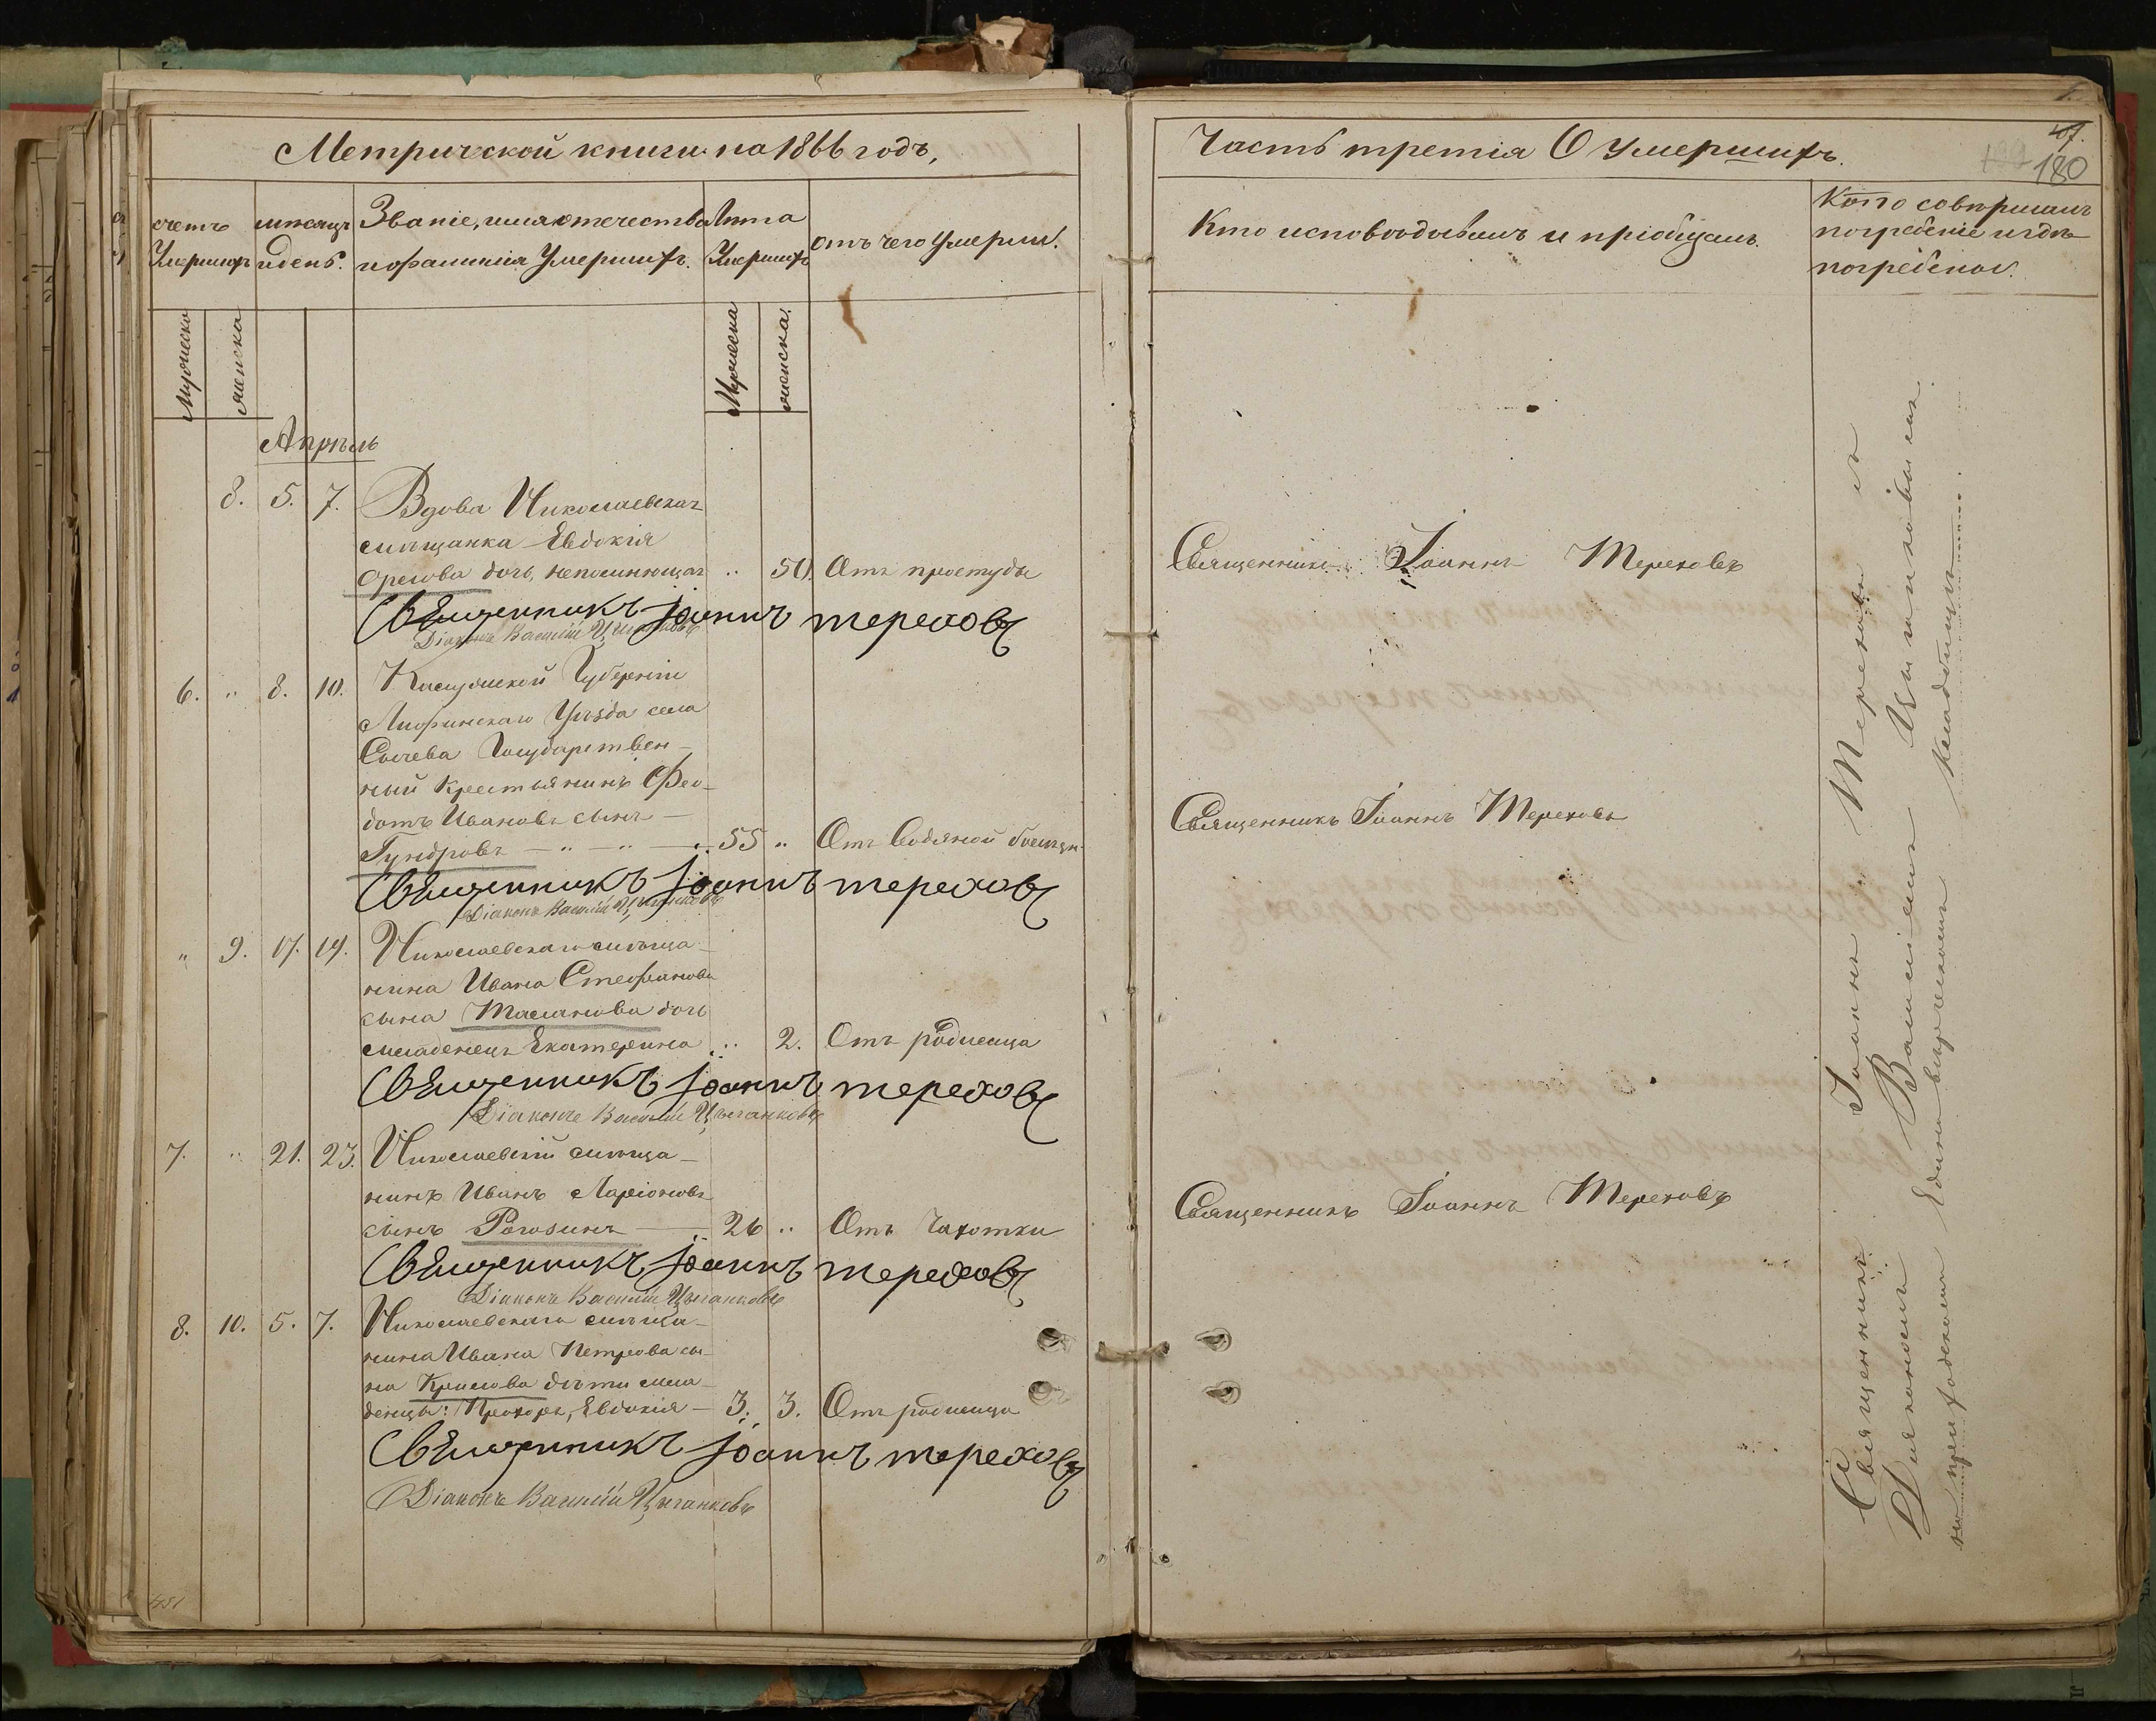 Метрической книги на 1866 годъ,
счетъ Умершихъ
мѣсяцъ и день.
Званіе, имя отечество и фамилія Умершихъ.
Лѣта Умершихъ
отъ чего Умерли.
Мужеска
женска
Мужеска
женска.
Апрѣль
8. 5. 7. Вдова Николаевская
мѣщанка Евдокія
дочь, 50. Отъ простуды
Священникъ Іоаннъ Тереховъ
Діаконъ Василій Цыганковъ
6. " 8. 10. Губерніи
Уѣзда села
Сычева Государствен-
ный крестьянинъ Фео-
дотъ Ивановъ сынъ
Гундровъ — " — " — 55 " Отъ водяной болѣзн.
Священникъ Іоаннъ Тереховъ
Діаконъ Василій Цыганковъ
" 9. 17. 19. Николаевскаго мѣща-
нина Ивана Стефанова
сына дочь
младенецъ Екатерина " 2. Отъ родимца
Священникъ Іоаннъ Тереховъ
Діаконъ Василій Цыганковъ
7. " 21. 23. Николаевскій мѣща-
нинъ Иванъ Ларіоновъ
сынъ Рогозинъ — 26 " Отъ Чахотки
Священникъ Іоаннъ Тереховъ
Діаконъ Василій Цыганковъ
8. 10. 5. 7. Николаевскаго мѣща-
нина Ивана Петрова сы-
на дѣти мла-
денцы: Прохоръ, Евдокія — 3. 3. Отъ родимца
Священникъ Іоаннъ Тереховъ
Діаконъ Василій Цыганковъ
Часть третія О Умершихъ.
180
Кто исповѣдывалъ и пріобщалъ.
Кто совершалъ
погребеніе и гдѣ
погребены.
Священникъ Іоаннъ Тереховъ
Священникъ Іоаннъ Тереховъ
Священникъ Іоаннъ Тереховъ
Священникъ Іоаннъ Тереховъ съ
Діакономъ Василіемъ Цыганковымъ
на приходскомъ Единовѣрческомъ кладбищѣ